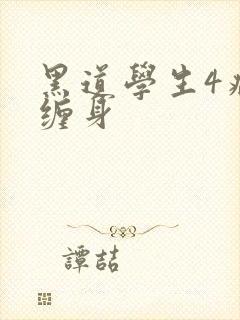 黑道學生4病
缠身
譚喆